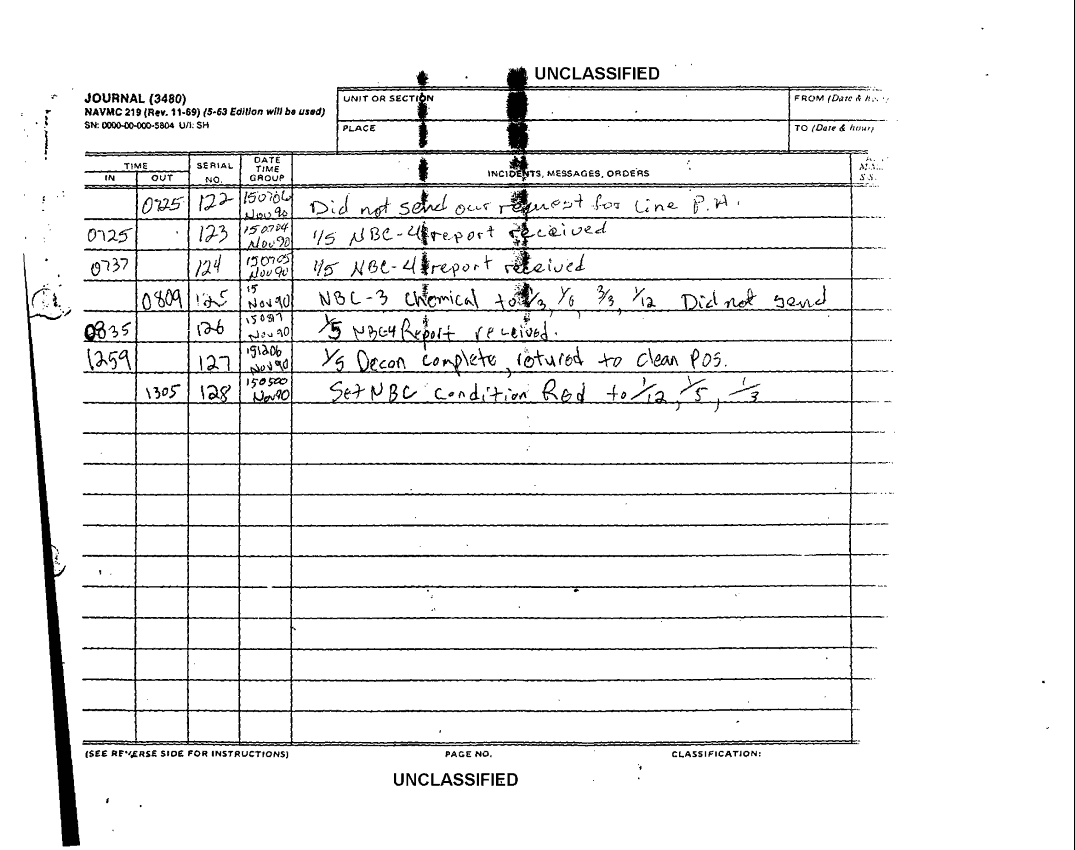 UNCLASSIFIED
JOURNAL (3480)
NAVMC 219 (Rev. 11-69) (5-63 Edition will be used)
SN: 0000-00-000-5804 U/I: SH
UNIT OR SECTION
FROM (Date & hour)
PLACE
TO (Date & hour)
TIME
IN OUT
SERIAL NO.
DATE TIME GROUP
INCIDENTS, MESSAGES, ORDERS
0725 122 150706 Nov 90 Did not send our request for Line P.H.
0725 123 150704 Nov 90 1/5 NBC-4 report received
0737 124 150705 Nov 90 1/5 NBC-4 report received
0809 125 15 Nov 90 NBC-3 Chemical to 1/3, 1/6, 3/3, 1/12 Did not send
0835 126 Nov 90 1/5 NBC4 Report received.
1259 127 151206 Nov 90 1/5 Decon complete, retured to clean POS.
1305 128 150500 Nov 90 Set NBC Condition Red to 1/12, 1/5, 1/3
(SEE REVERSE SIDE FOR INSTRUCTIONS)
PAGE NO.
CLASSIFICATION:
UNCLASSIFIED